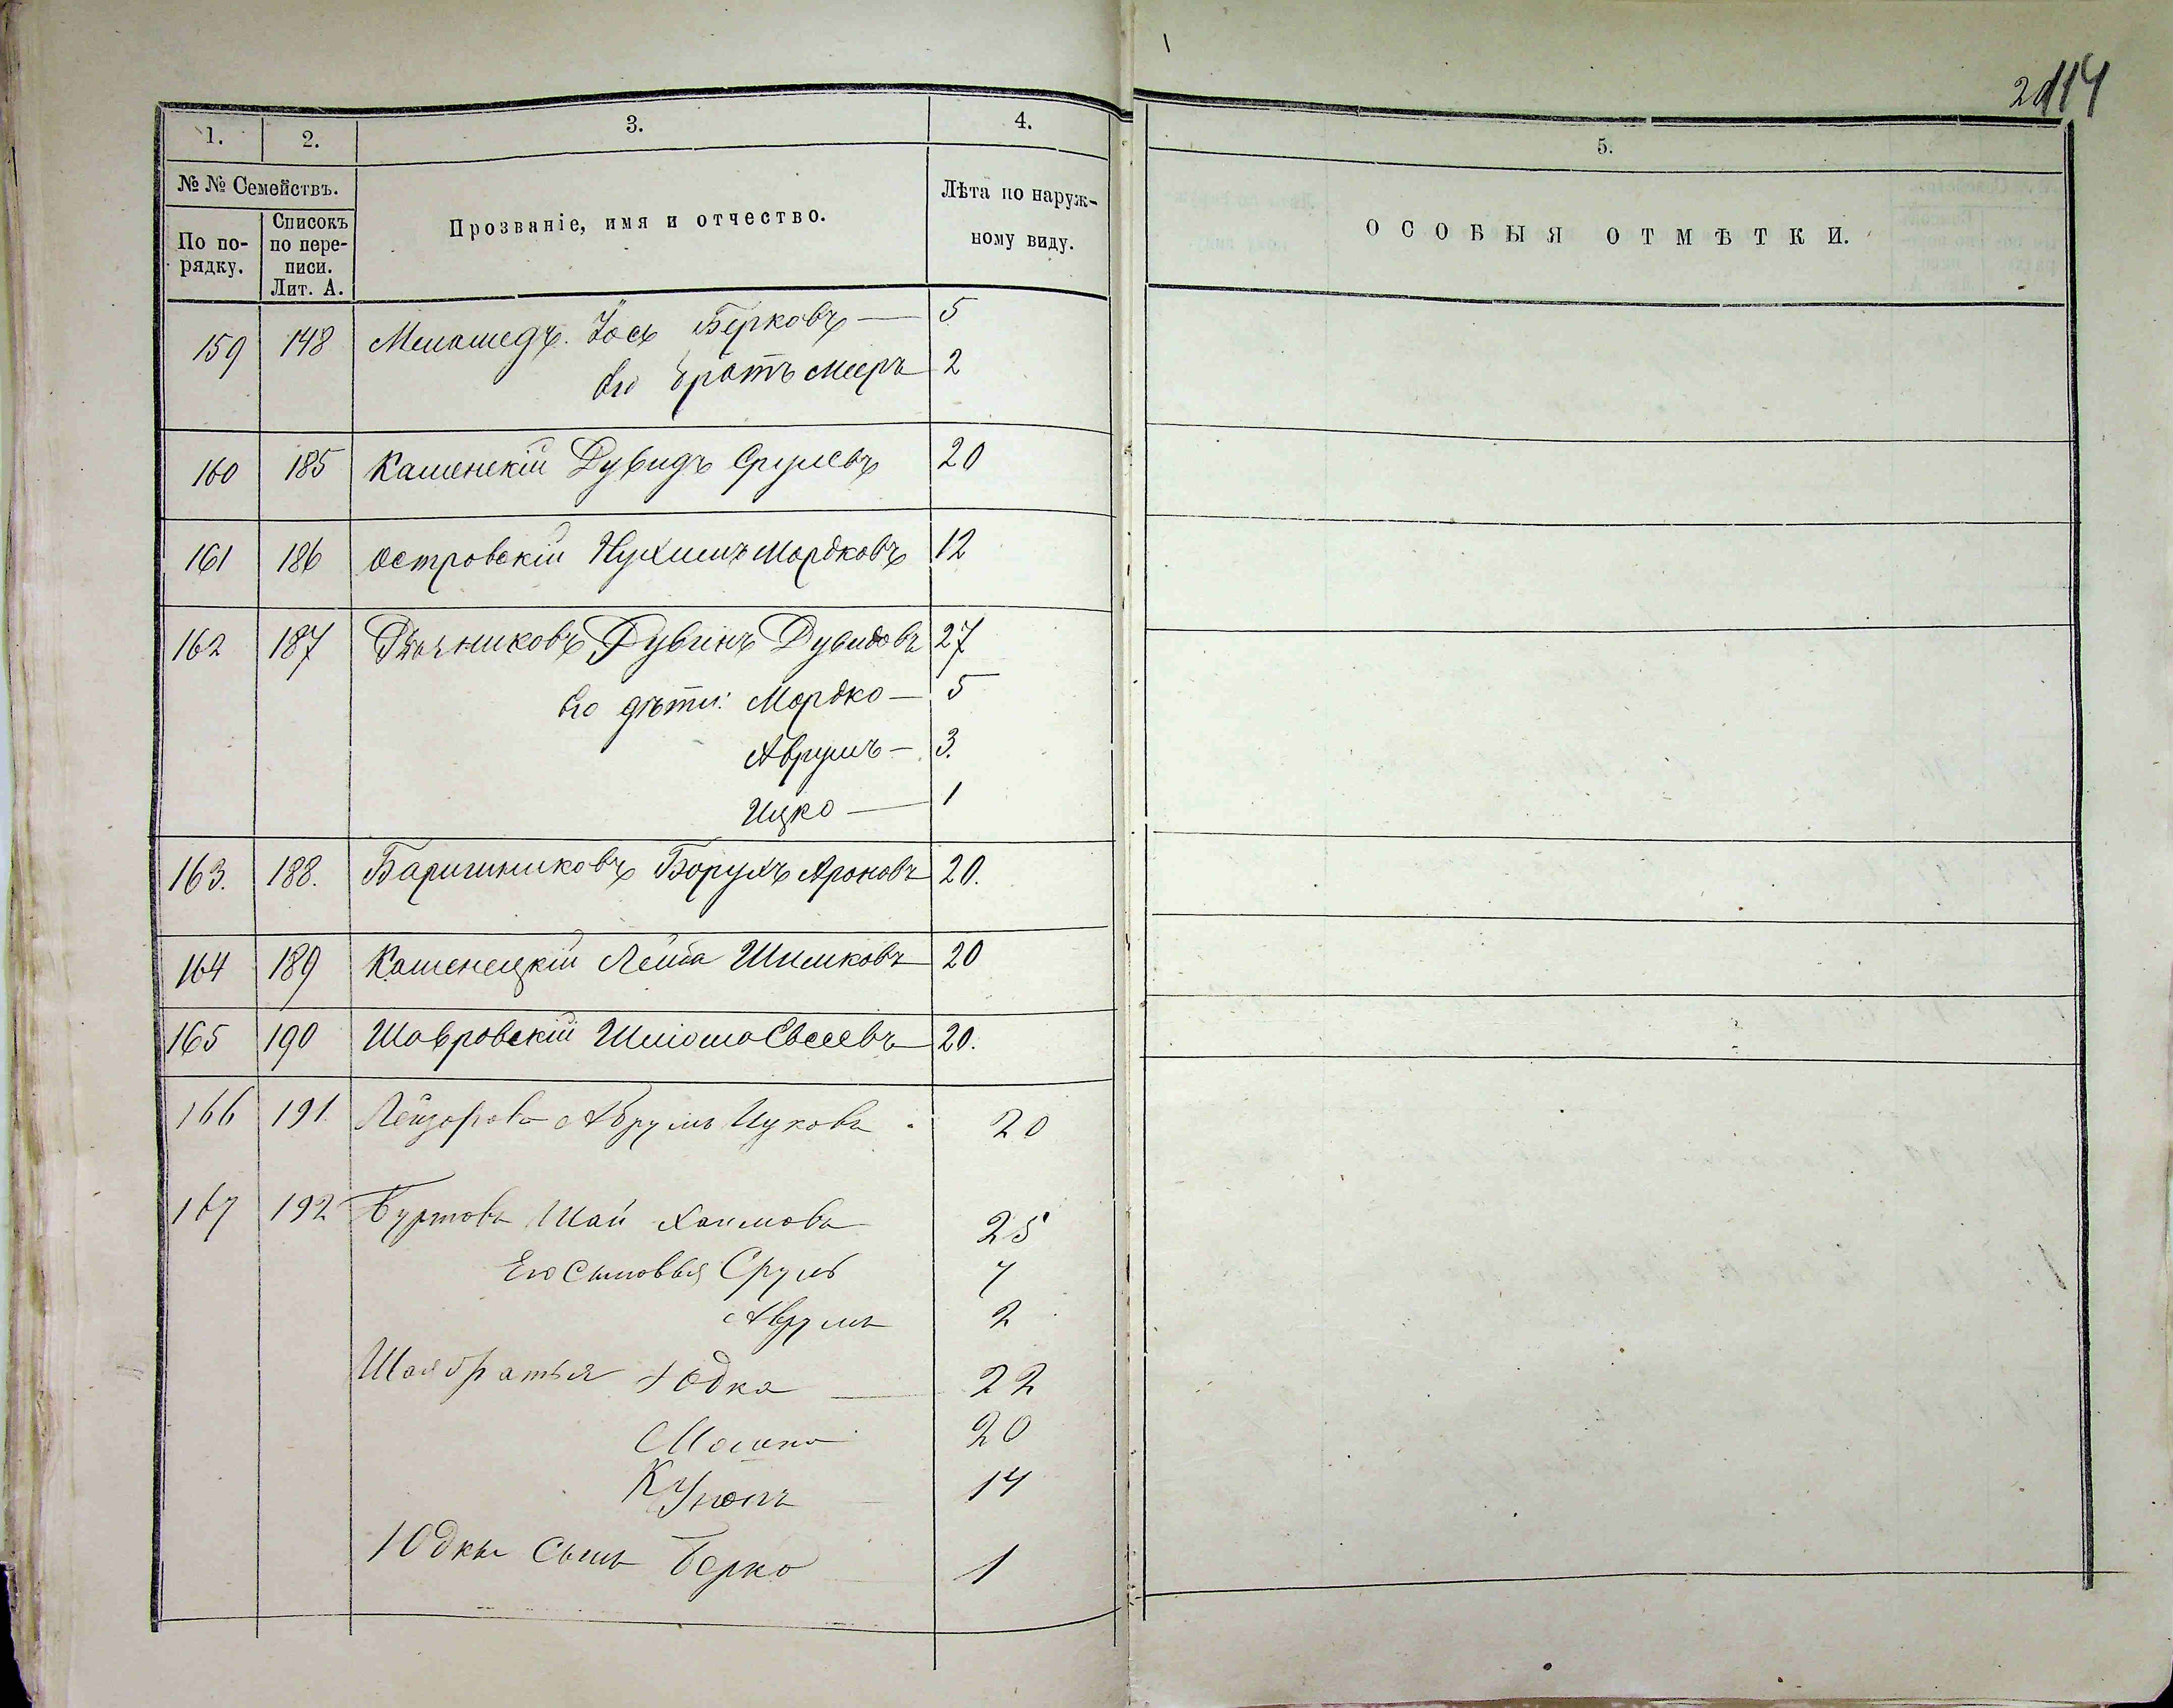 114
1.
2.
3.
4.
5.
№ № Семействъ.
По по-
рядку.
Списокъ
по пере-
писи.
Лит. А.
Прозваніе, имя и отчество.
Лѣта по наруж-
ному виду.
ОСОБЫЯ ОТМѢТКИ.
159 148 Меламедъ Іось Берковъ — 5
его братъ Мееръ 2
160 185 Каменскій Дувидъ Срулевъ 20
161 186 Островскій Нухимъ Мордковъ 12
162 187 Рувинъ Дувидовъ 27
его дѣти: Мордко — 5
Аврумъ — 3.
Ицко — 1
163. 188. Борухъ Ароновъ 20.
164 189 Каменецкій Лейба Шимковъ 20
165 190 Шавровскій Евсеевъ 20.
166 191. Лейзоровъ Абрумъ Ицковъ 20
167 192 Буртовъ Шай Хаимовъ 25
Его сыновья Сруль 7
Аврумъ 2
Шая братья Юдка — 22
Мошко 20
14
Юдки сынъ Берко 1